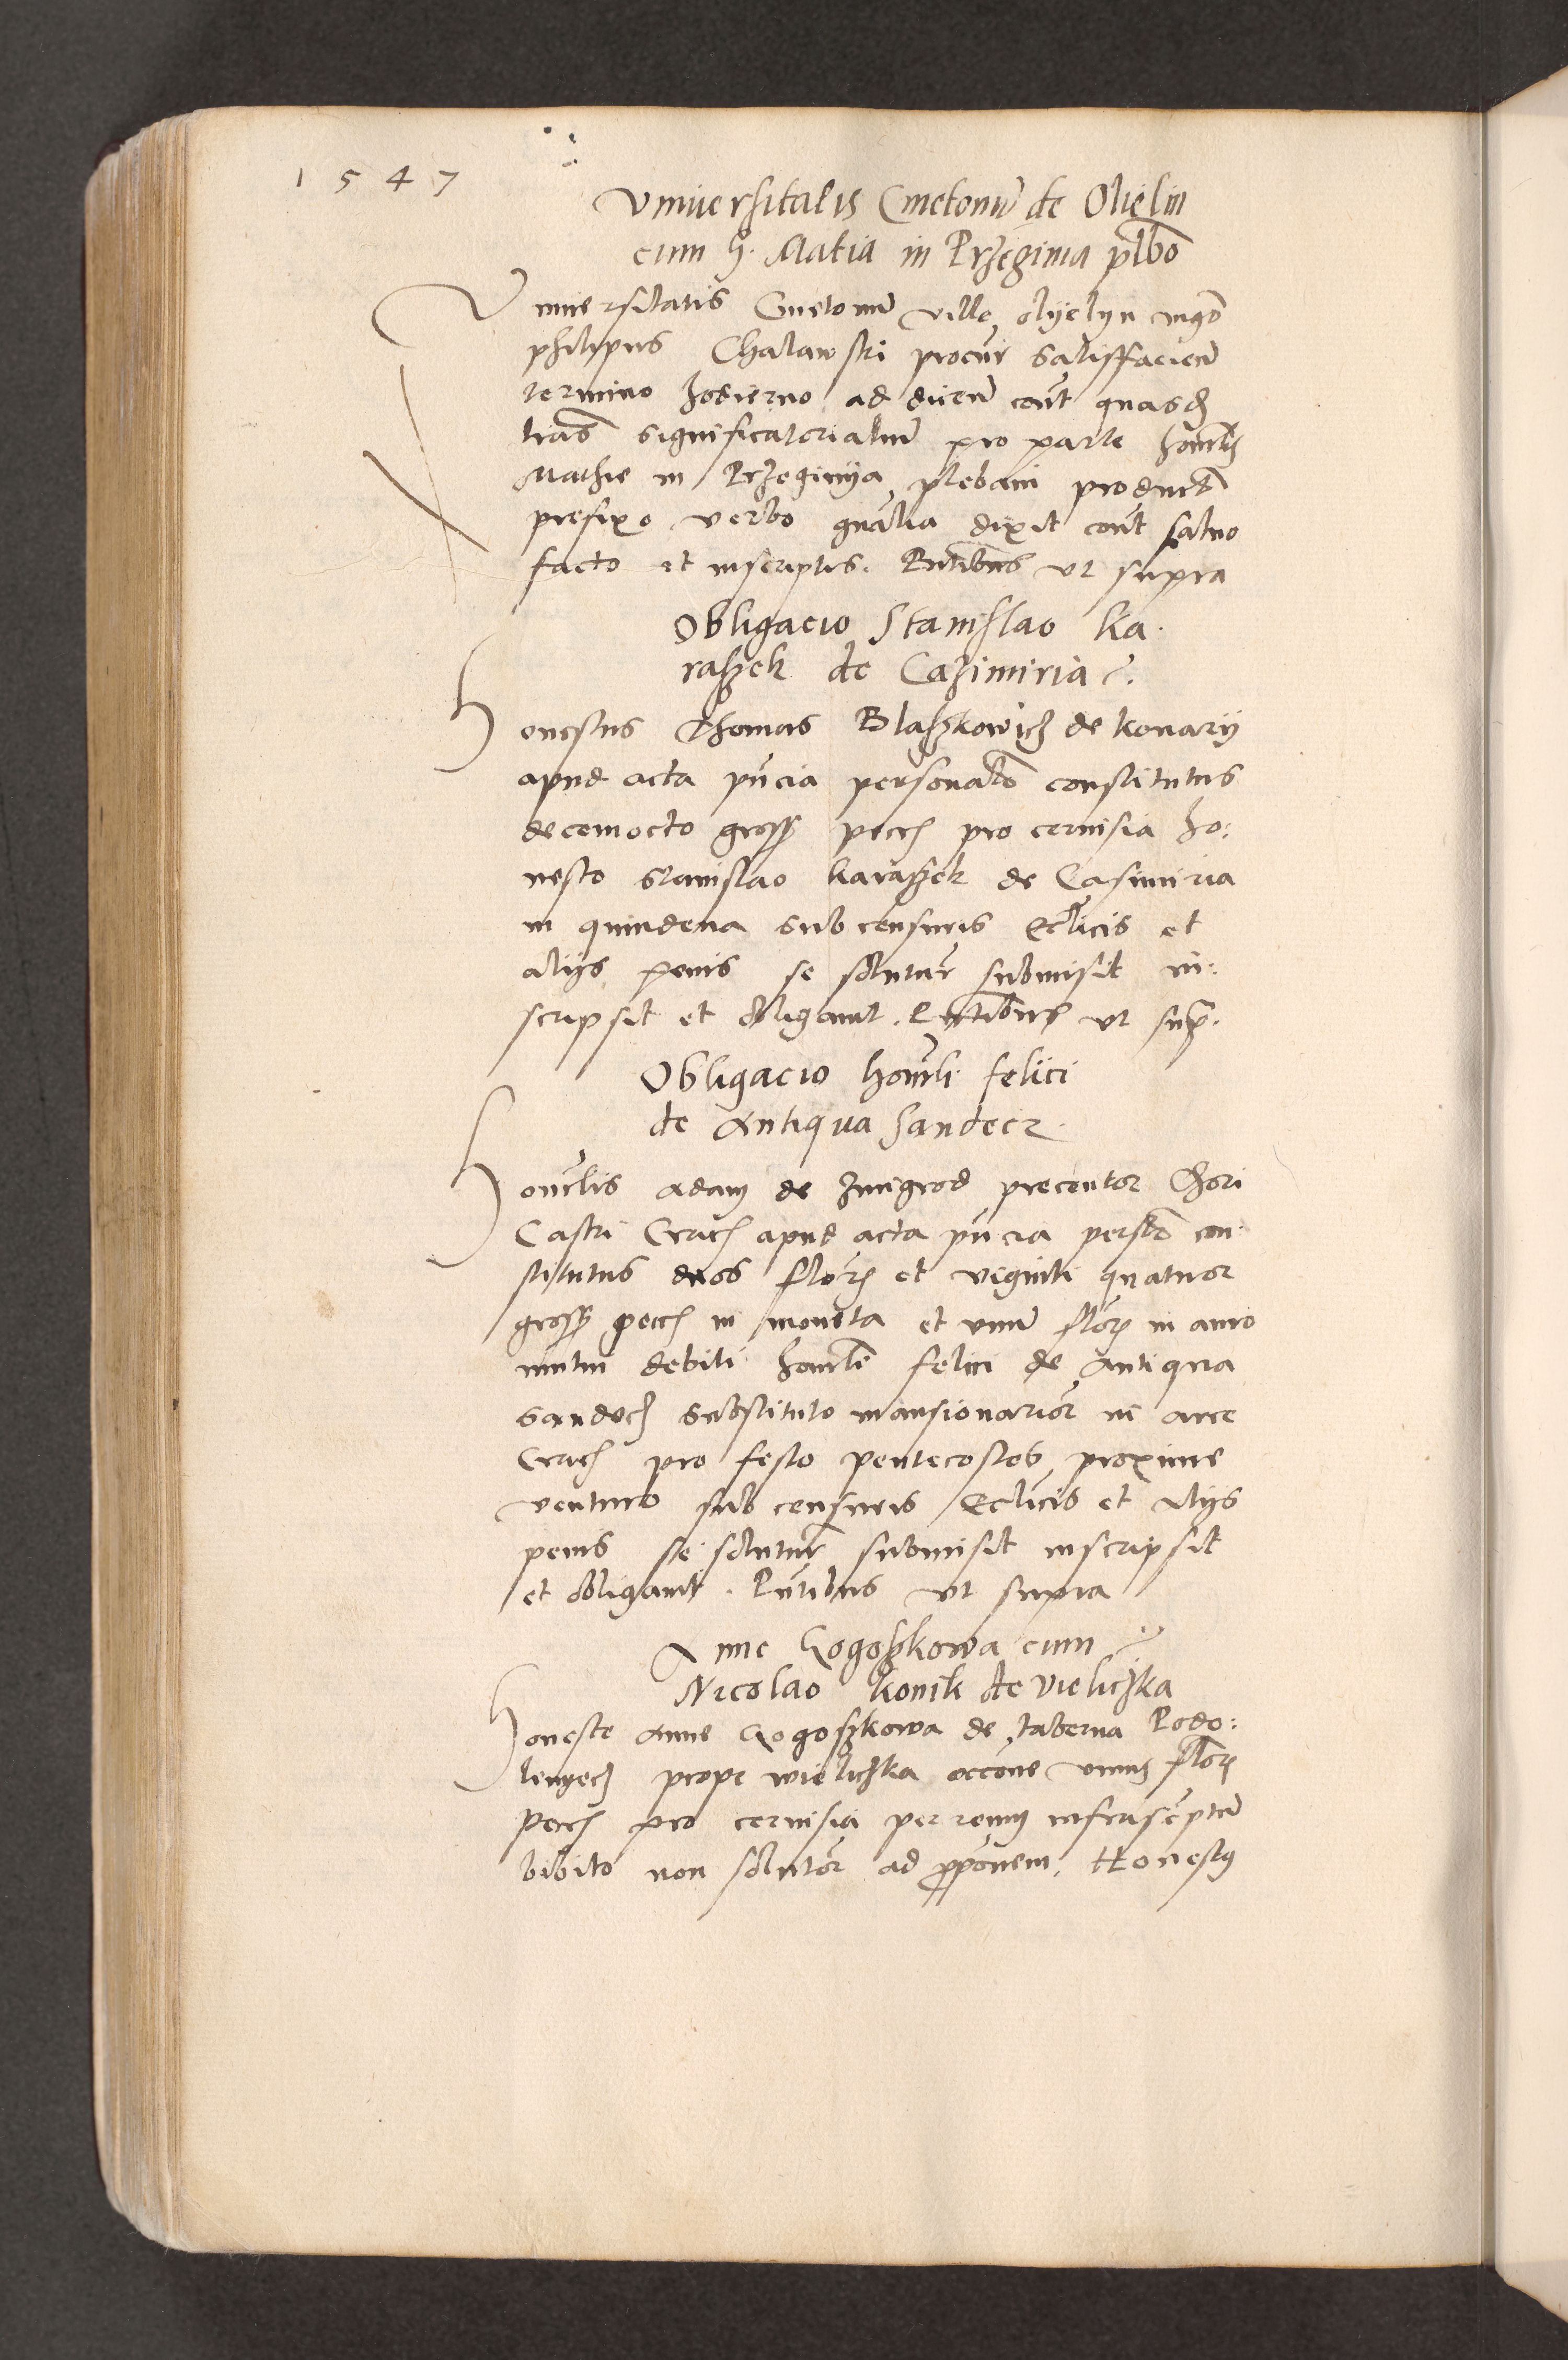 1547
Vniuersitatis Cmetonum de Olielin
cum h. Matia in Przeginia plbo
Vniuersitatis Cmetonum ville olyelyn
philipus Chalawski procur satisffaciens
termino hodierno ad dicen cont quasd
lras significatorialium pro parte honor
Mathie in Przeginya plebani
prefixo verbo gnalia dixit cont saluo
facto et inscriptis. Pntibus vt supra
Obligacio Stanislao Ka.
raszek de Cazimiria
Honestus Thomas Blaszkowicz de konary
apud acta pncia personalr constitutus
decemocto gross pecc pro ceruisia ho:
nesto Stanislao karaszek de Casimiria
in quindena sub censuris Ecclicis et
alijs penis se solutur submisit in:
scripsit et obligauit. Pntibus vt supr.
Obligacio honorli felici
de Antiqua Sandecz.
Honorlis Adam de Zmigrod precentor Chori
Castri Cracc apud acta pncia personlr con
stitutus duos flor et viginti quatuor
gross pecc in moneta et vnum flor in auro
mutui debiti honorli felici de Antiqua
Sandecz substituto mansionarior in arce
Cracc pro festo pentecostes proxime
venturo sub censuris Ecclicis et alijs
penis se solutur submisit inscripsit
et obligauit. Pntibus vt supra
Anne Gogoszkowa cum
Nicolao konik de vieliczka
Honeste Anne Gogoszkowa de taberna Podo:
lenyecz prope wieliczka accone vnius flor
pecc pro ceruisia per reum infrascriptum
bibito non solutor ad proponem. Honestus